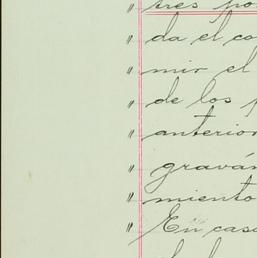 " tres po
" da el co
" mir el
" de los p
" anterior
" graván
" miento
" En cas